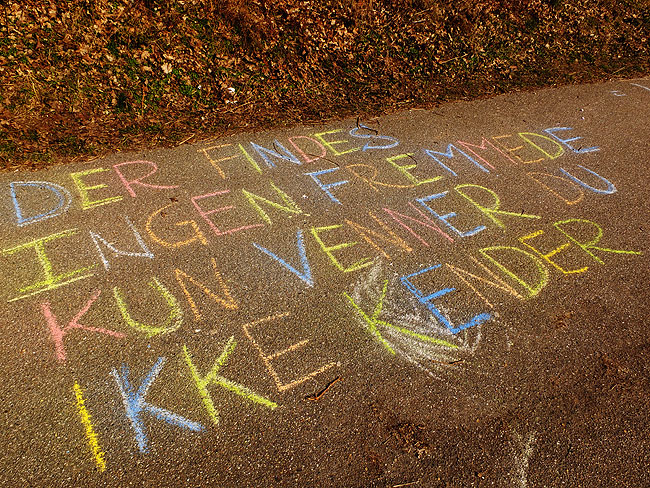 DER FINDES
INGEN FREMMEDE
KUN VENNER DU
IKKE KENDER